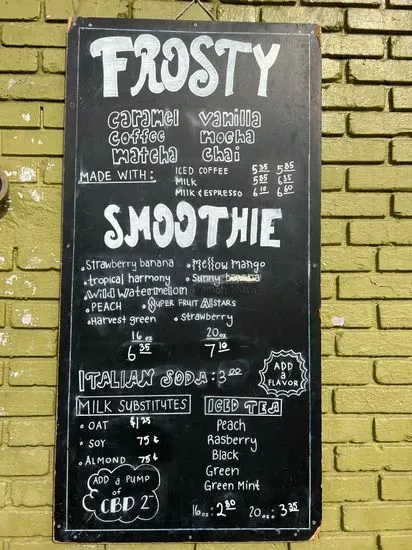 FROSTY
caramel vanilla
coffee mocha
matcha chai
MADE WITH: ICED COFFEE 5.35 5.85
MILK 5.85 6.35
MILK & ESPRESSO 6.10 6.60
SMOOTHIE
• Strawberry banana • Mellow mango
• tropical harmony • Sunny banana
• Wild Watermelon
• PEACH • SUPER FRUIT AllSTARS
• Harvest green • strawberry
16 oz 20 oz
6 35 7 10
ITALIAN SODA: 3.00
ADD a FLAVOR
MILK SUBSTITUTES
• OAT $1.25
• SOY 75¢
• ALMOND 75¢
ADD A PUMP
of
CBD 2
ICED TEA
Peach
Rasberry
Black
Green
Green Mint
16 oz: 2.80 20 oz: 3.35